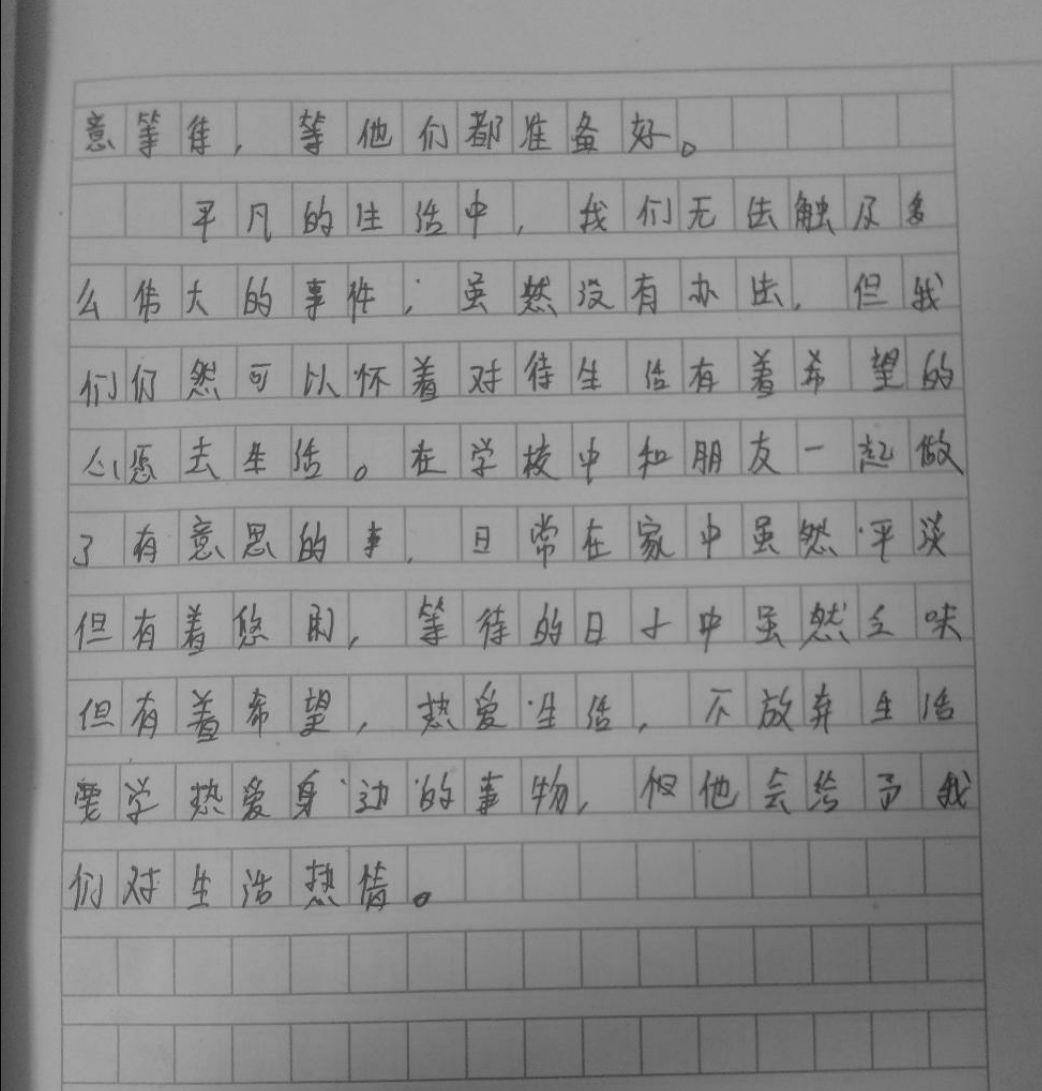 意等隹，等他们都准备好。
平凡的生活中，我们无法触及多
么伟大的事件；虽然没有办法，但我
们仍然可以怀着对待生活有着希望的
心愿去生活。在学校中和朋友一起做
了有意思的事，日常在家中虽然平淡
但有着悠闲，等待的日子中虽然乏味
但有着希望，热爱生活，不放弃生活
要学热爱身边的事物，他会给予我
们对生活热情。